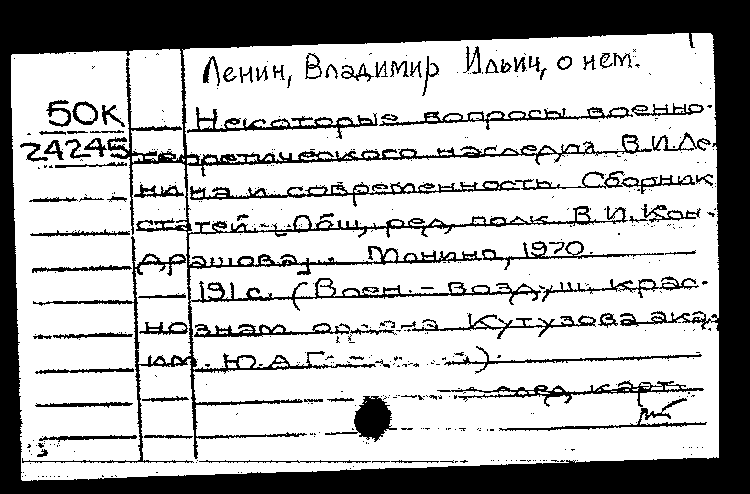 Ленин, Владимир Ильич, о нем.
50К Некоторые вопросы военно-
24245 теоретического наследия В.И.Ле-
нина и современность. Сборник
статей. Общ. ред. полк В.И.Кон-
драшова. Монино, 1970.
191 с. (Воен.-воздуш. крас-
нознам ордена Кутузова акад
им. Ю.А.
след. карт.